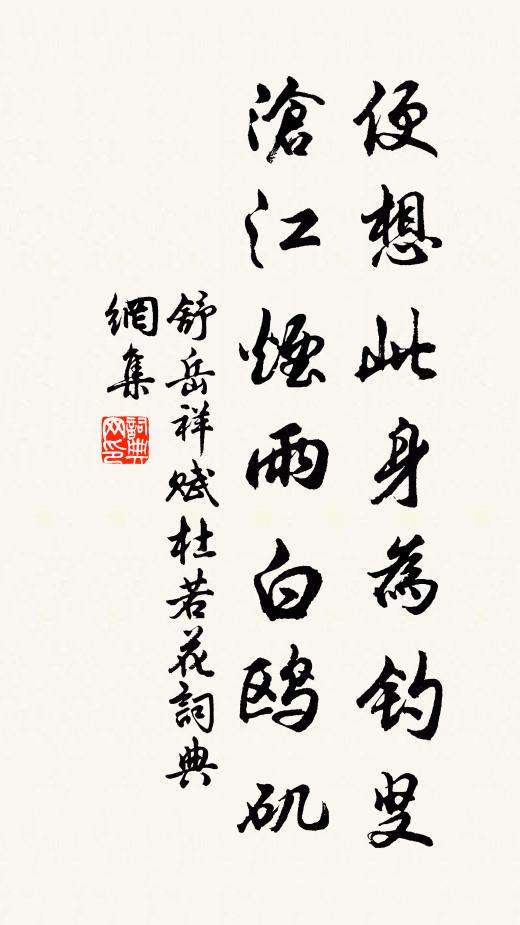 便想此身為钓叟
滄江煙雨白鸥矶
舒岳祥赋杜若花詞典
網集
詞典
网印